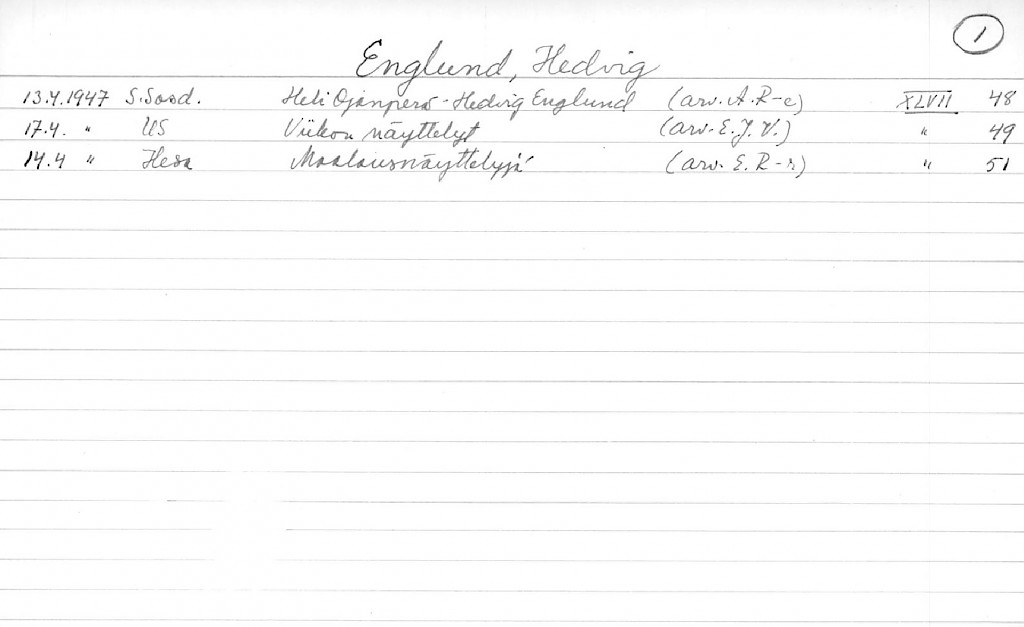 1
Englund, Hedvig
13.4.1947 S.Sosd. Heli Ojanperä - Hedvig Englund (arv. A. R-e) XLVII 48
17.4. " US Viikon näyttelyt (arv. E. J. V.) " 49
14.4 " Hesa Maalausnäyttelyjä (arv. E. R-r) " 51